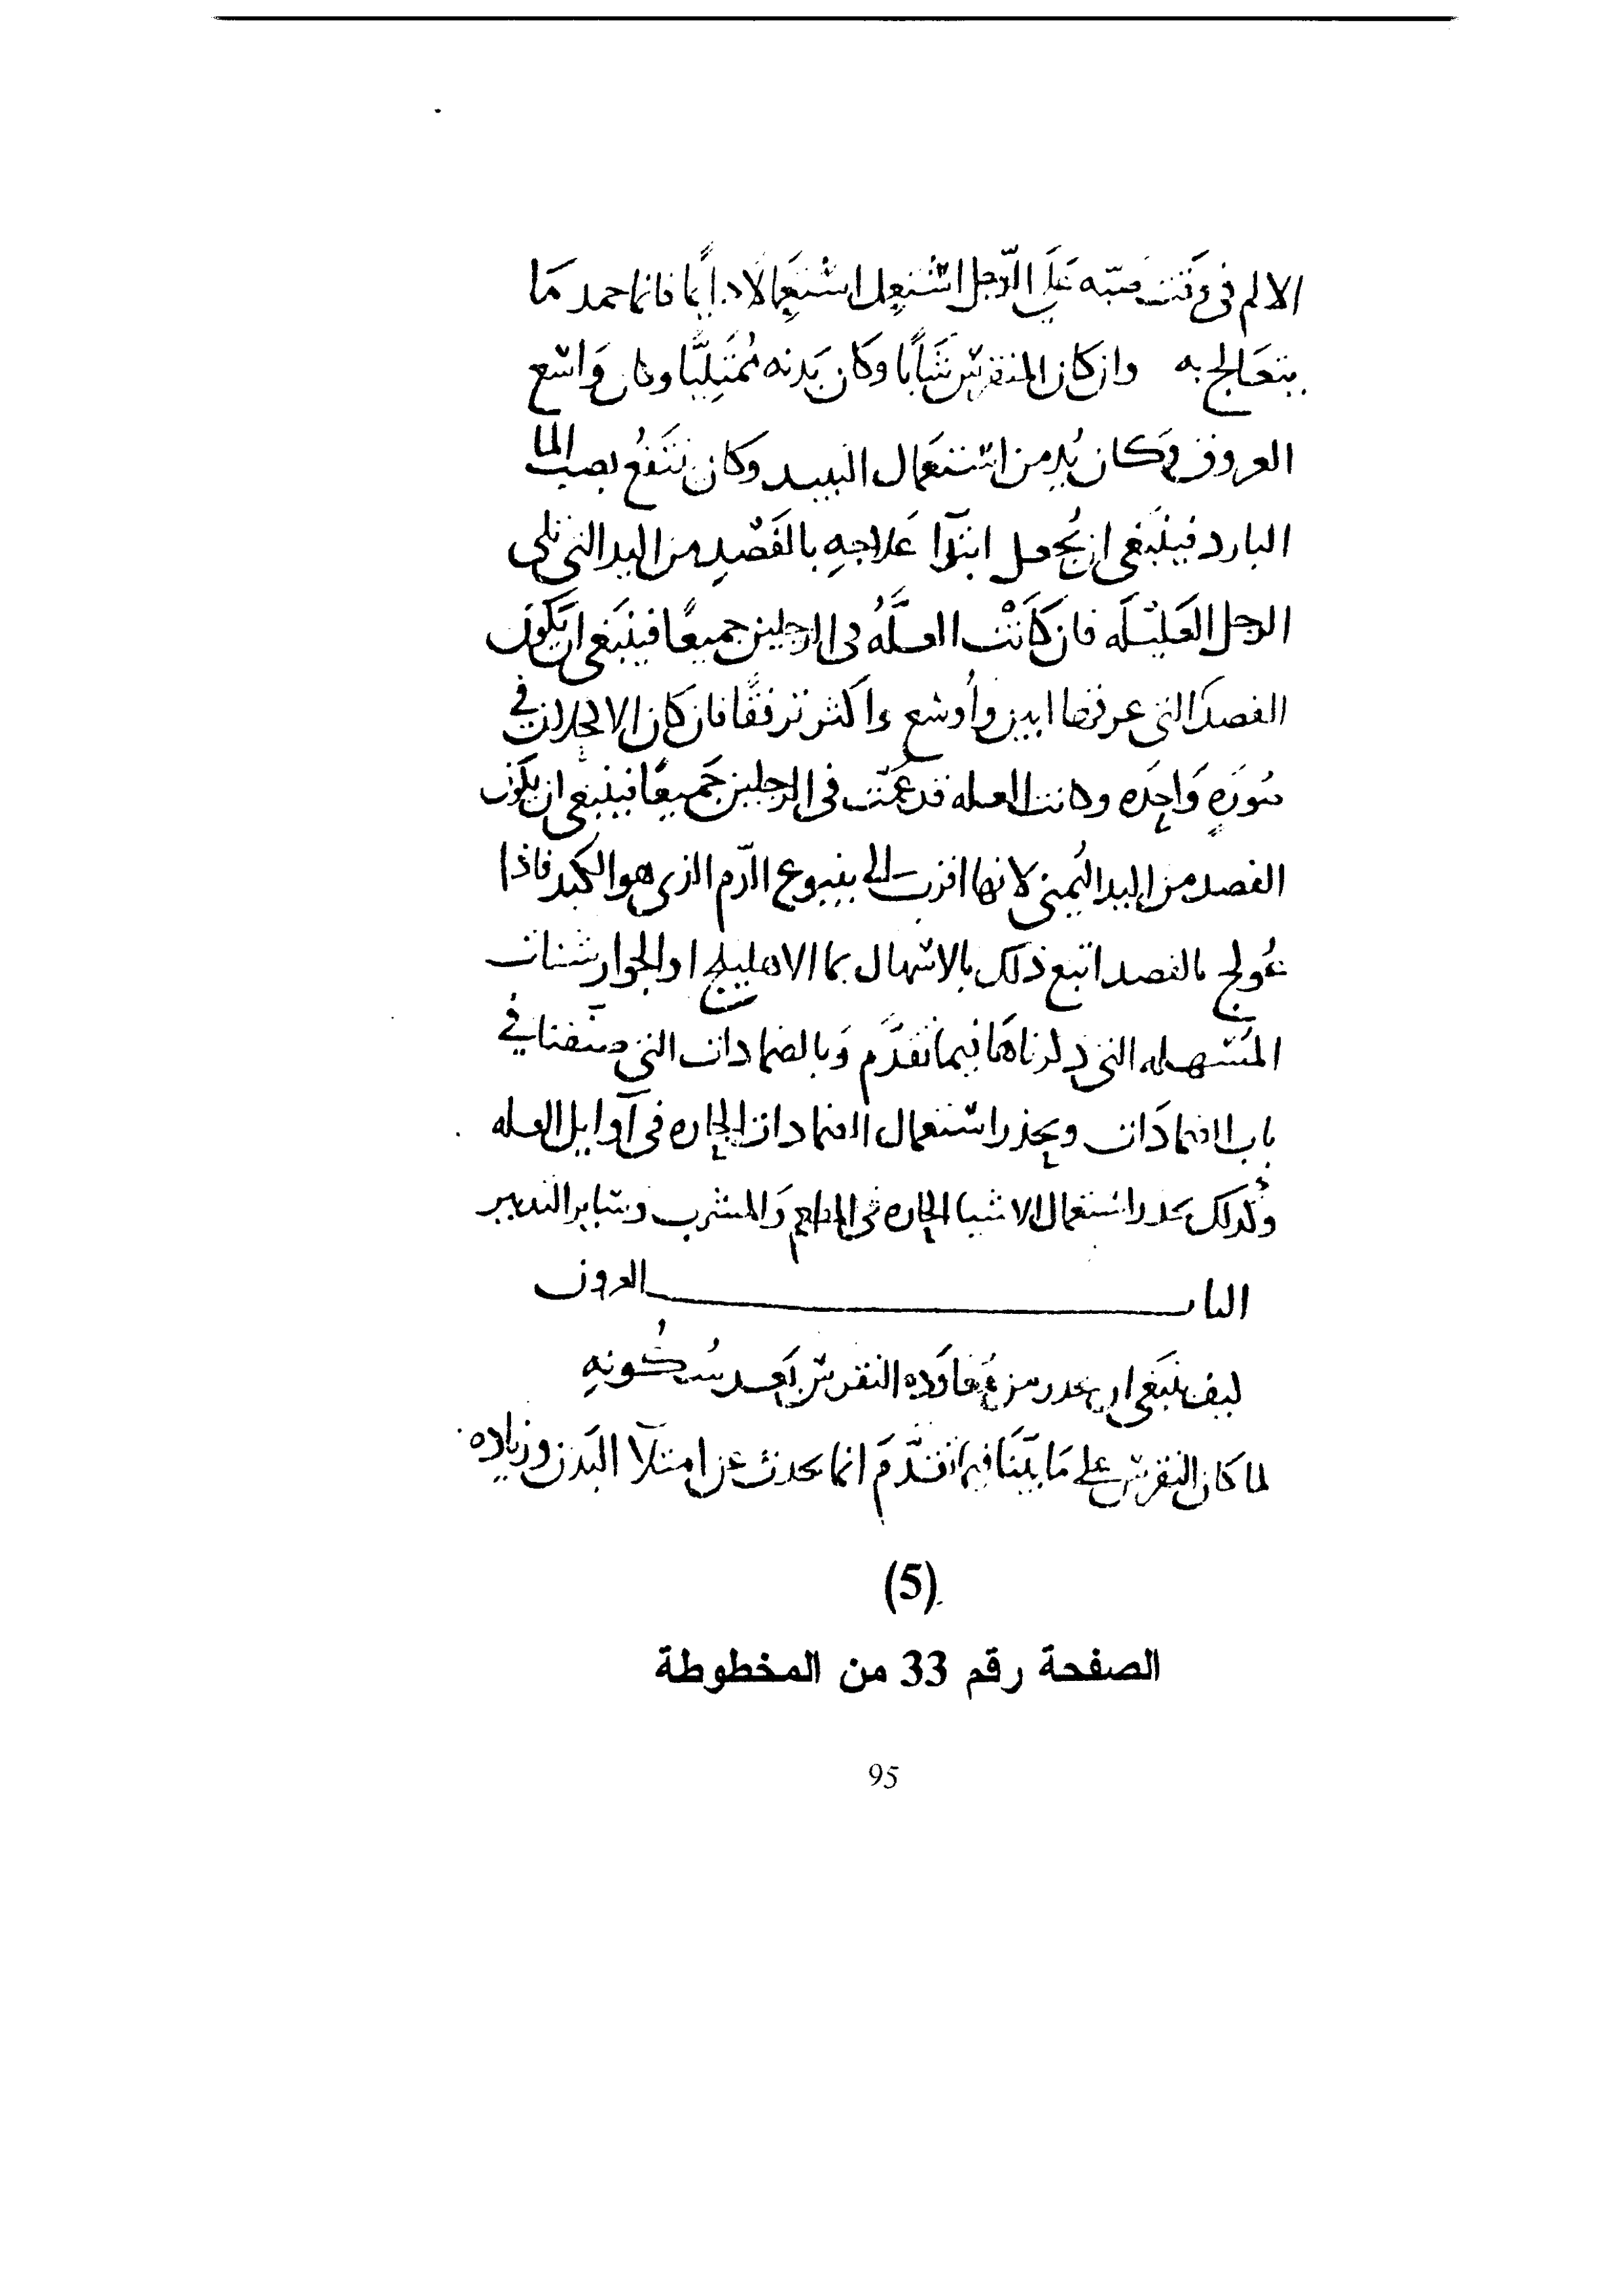 الالم في وقت صبّه عَلَي الرّجل استُعمِل استِعمَالا دايمًا فانما حمد مَا
يتعَالج به وان كان المنقرس شَابًا وكَان بَدنه مُمتَلِيًا وكان وَاسع
العروق وكان يُدمن استعمَال النبيذ وكان ينتَفعُ بصب الما
البارد فينبغي ان يُجعل ابتدا عَلاجِهِ بالفَصْدِ من اليد التي تلي
الرجل العَليْلَه فان كَانَتْ العلَّهُ في الرجلين جميعًا فينبَغي ان يَكون
الفصد التي عرقها ابين وأوسع واكثر ترفقًا فان كان الانجلان في
صُورَةٍ وَاحِدَه وكانت العله قد عَمّت في الرجلين جَميعًا فينبغي ان يَكون
الفصد من اليد اليُمنى لانها اقرب الى ينبوع الدّم الذي هو الكبد فاذا
عُولج بالفصد اتبع ذلك بالاسهال بما الاهليلج او الجوارشنات
المُسَهله التي ذكرناهَا فيما تقدَّم وَبالضمادات التي صنّفنا في
باب الضمادَات ويحذر استعمال الضمادات الحاره في آوايل العله
وكذلك يحذر استعمال الاشيا الحاره في المطاعم وَالمشرب وساير التدبير
الباب العرون
كيف ينبَغي ان يحذر من مُعَاوَده النقرس بَعد سُكُونهِ
لما كان النقرس على مَا بيّنَا فيما تقدَّمَ انما يحدث عَن امتلآ البَدن وزياده
(5)
الصفحة رقم 33 من المخطوطة
95